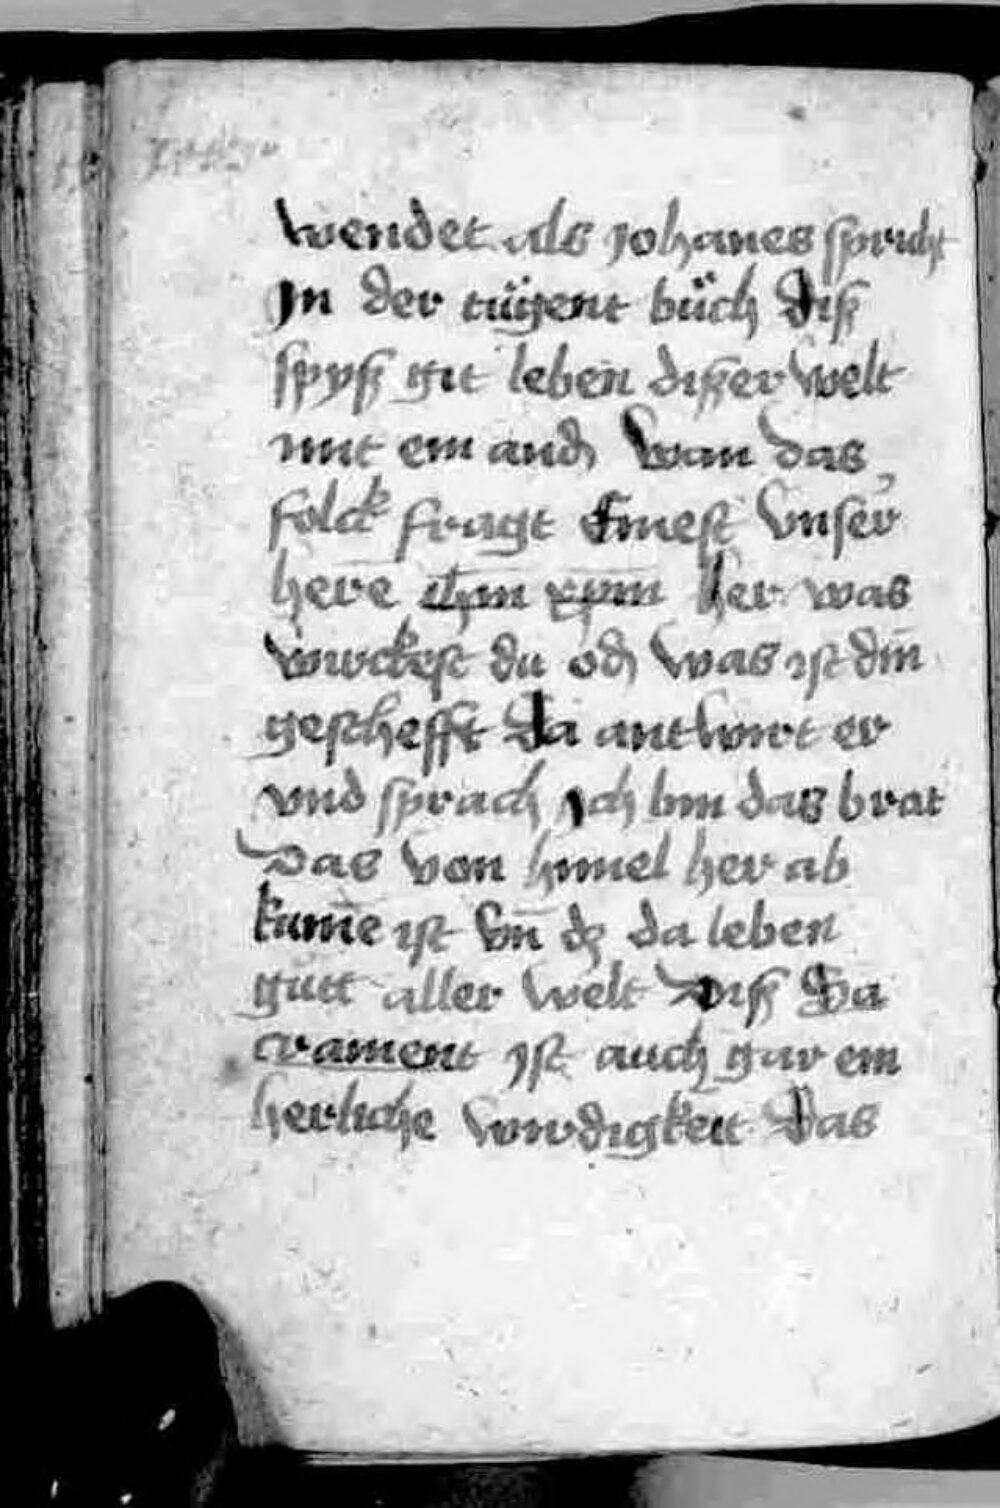 wendet als johanes spricht
Jn der tügent büch diß
spyß git leben disser welt
mit ein andʒ wan das
folck fragt Eines unser
here ihm xpm her was
würckest du odʒ was ist din
gescheft Da antwirt er
vnd sprach ich bin das brot
Das von himel her ab
kumē ist vn̄ dʒ da leben
gütt aller welt Diß Sa
crament ist auch gar ein
herliche wirdigkeit Das